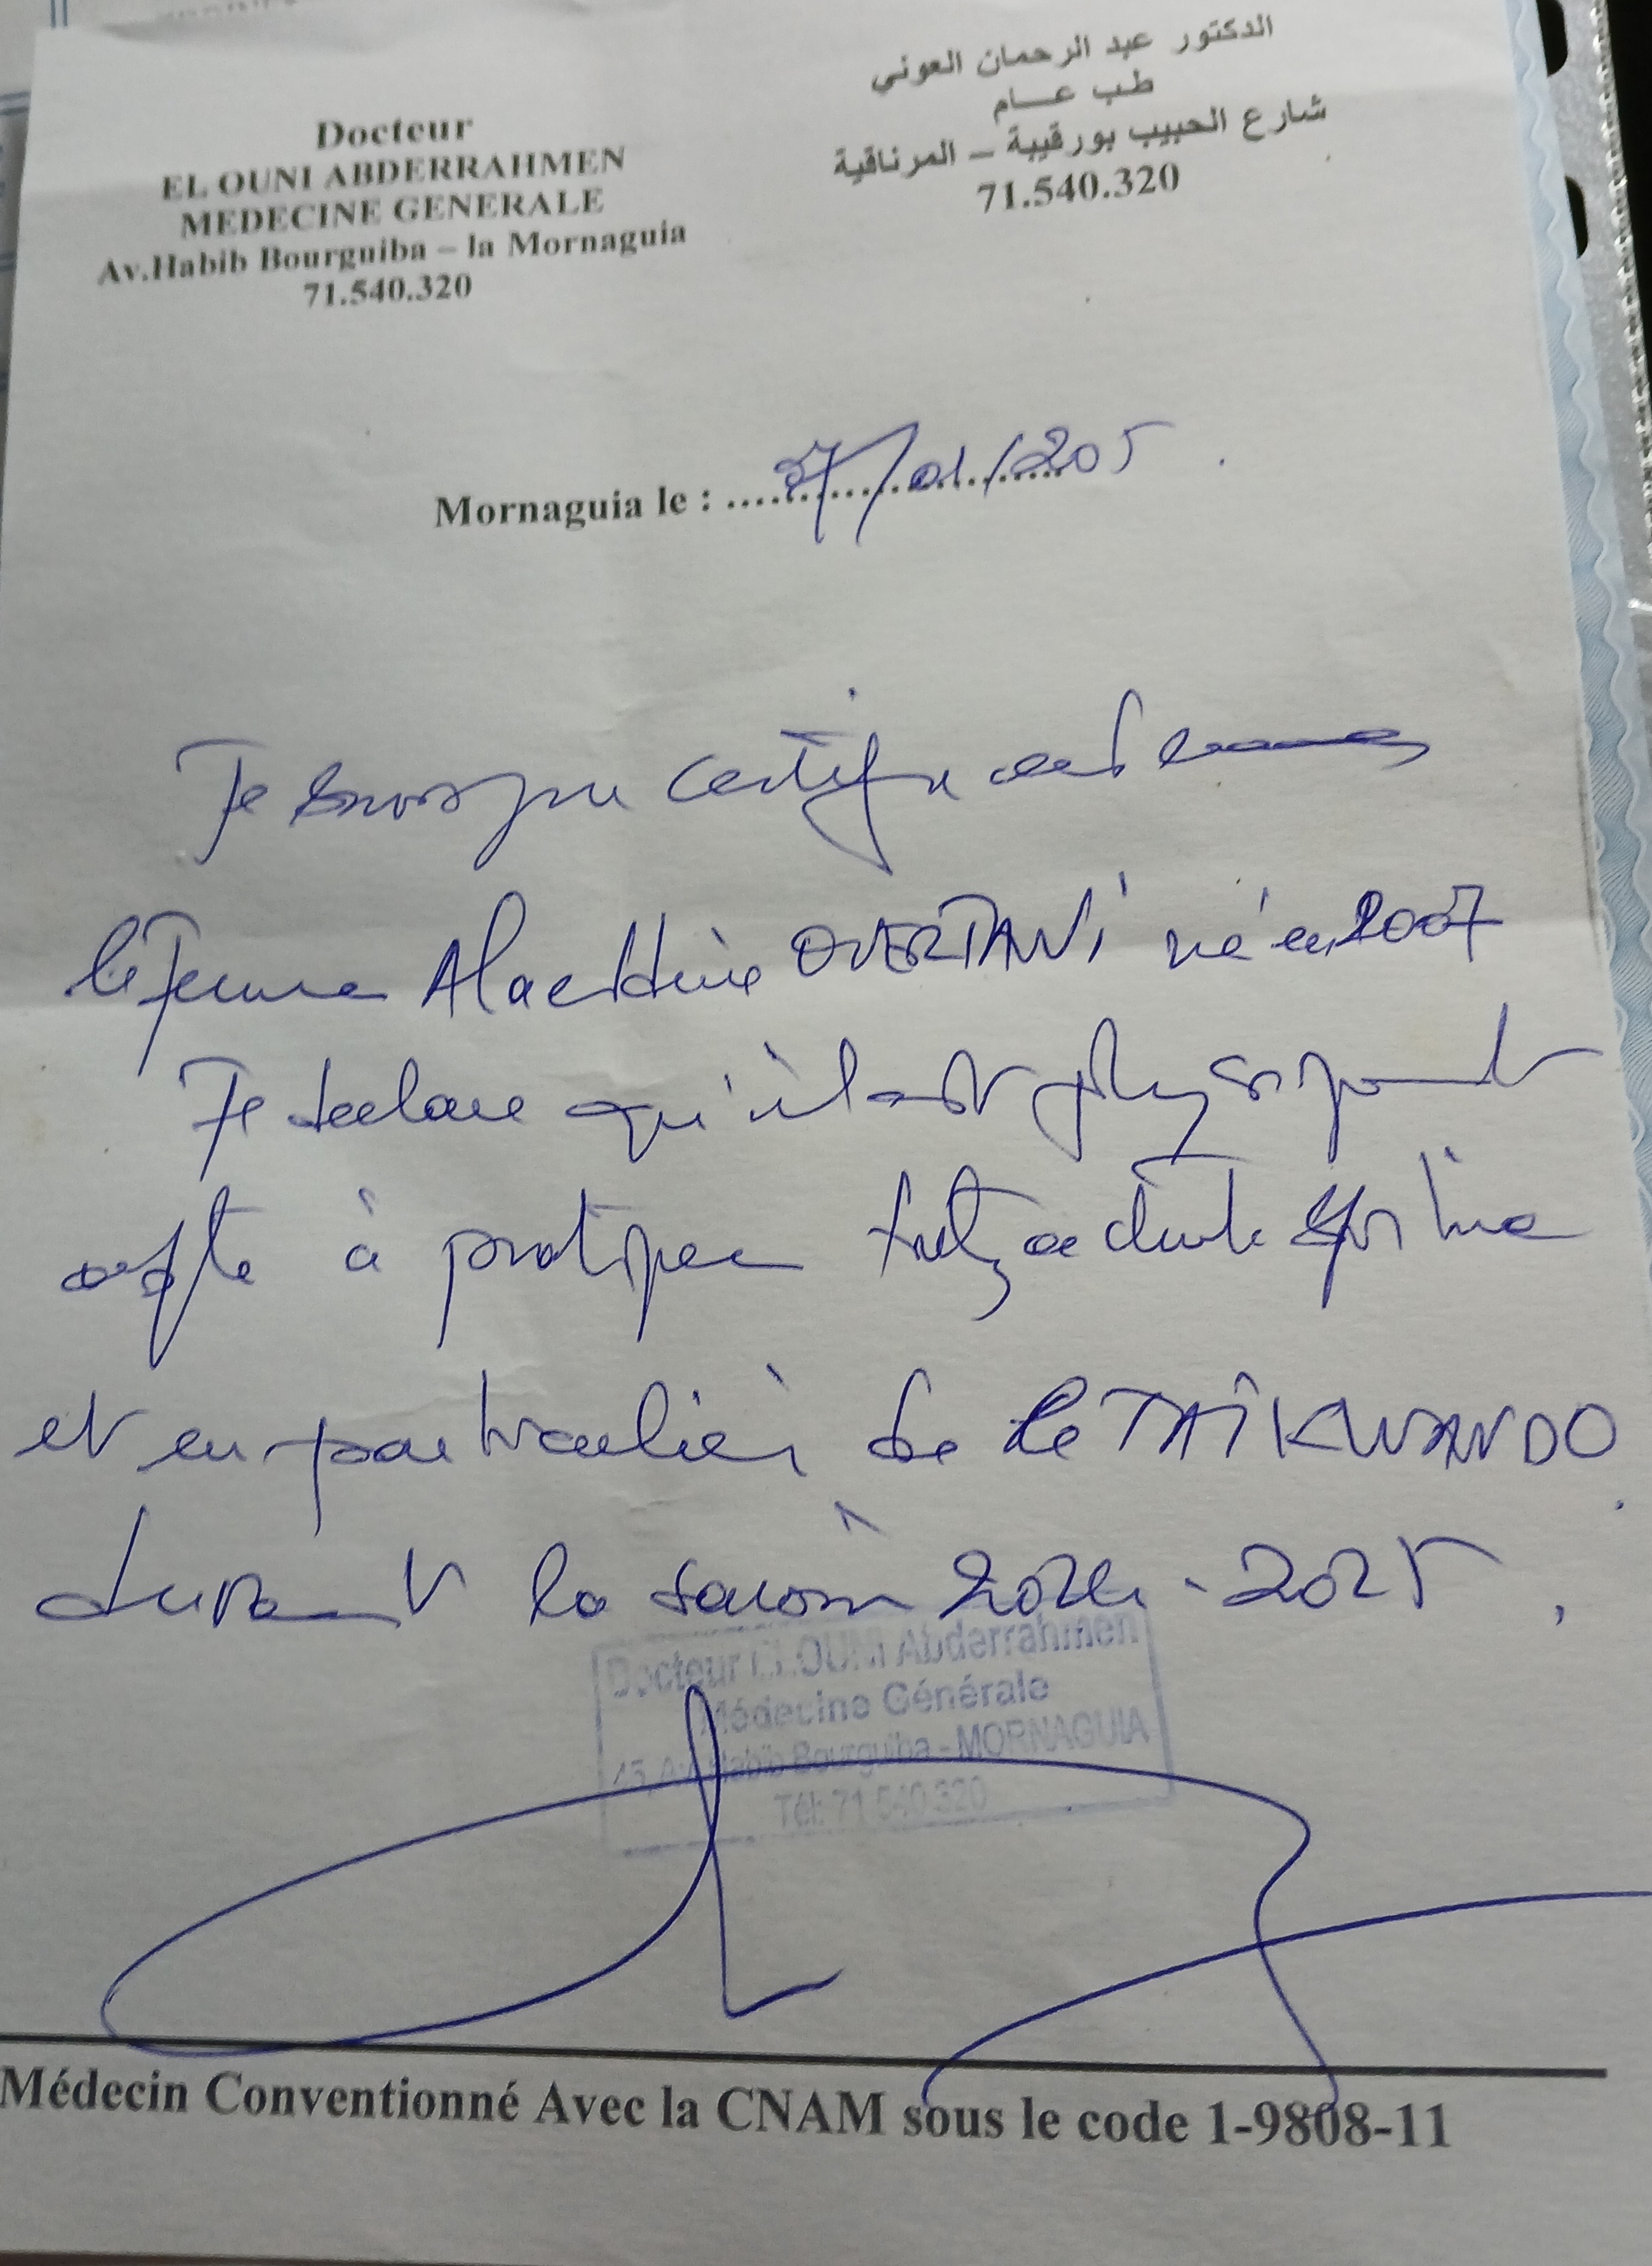 Docteur
EL OUNI ABDERRAHMEN
MEDECINE GENERALE
Av.Habib Bourguiba – la Mornaguia
71.540.320
الدكتور عبد الرحمان العوني
طب عـــام
شارع الحبيب بورقيبة – المرناقية
71.540.320
Mornaguia le : /01/205
Je certifie
le Jeune Alaeddine OUERTANI né en 2007
Je declare qu'il est
apte à pratiquer
et en particulier de le TAÏKWANDO
durant la saison 2024-2025
Docteur ELOUNI Abderrahmen
Médecine Générale
45, Av. Habib Bourguiba - MORNAGUIA
Tél: 71 540 320
Médecin Conventionné Avec la CNAM sous le code 1-9808-11